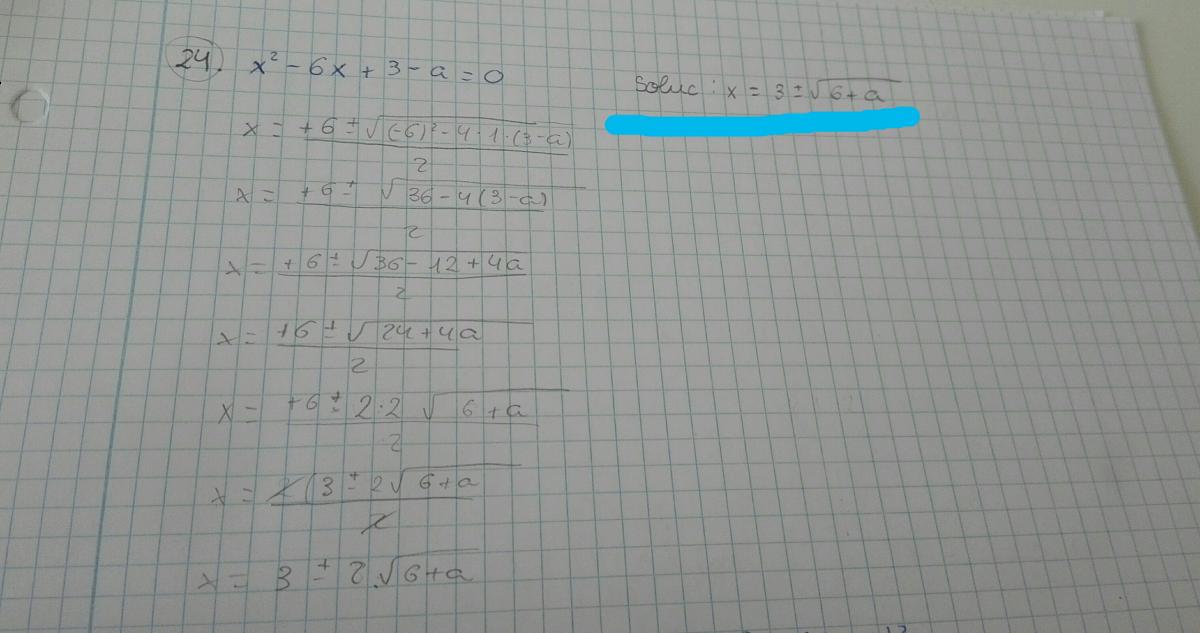 24. x² - 6x + 3 - a = 0
Soluc: x = 3 ± √(6+a)
x = (+6 ± √((-6)² - 4·1·(3-a))) / 2
x = (+6 ± √(36 - 4(3-a))) / 2
x = (+6 ± √(36 - 12 + 4a)) / 2
x = (+6 ± √(24 + 4a)) / 2
x = (+6 ± 2·2 √(6+a)) / 2
x = 2(3 ± 2√(6+a) / 2
x = 3 ± 2·√(6+a)